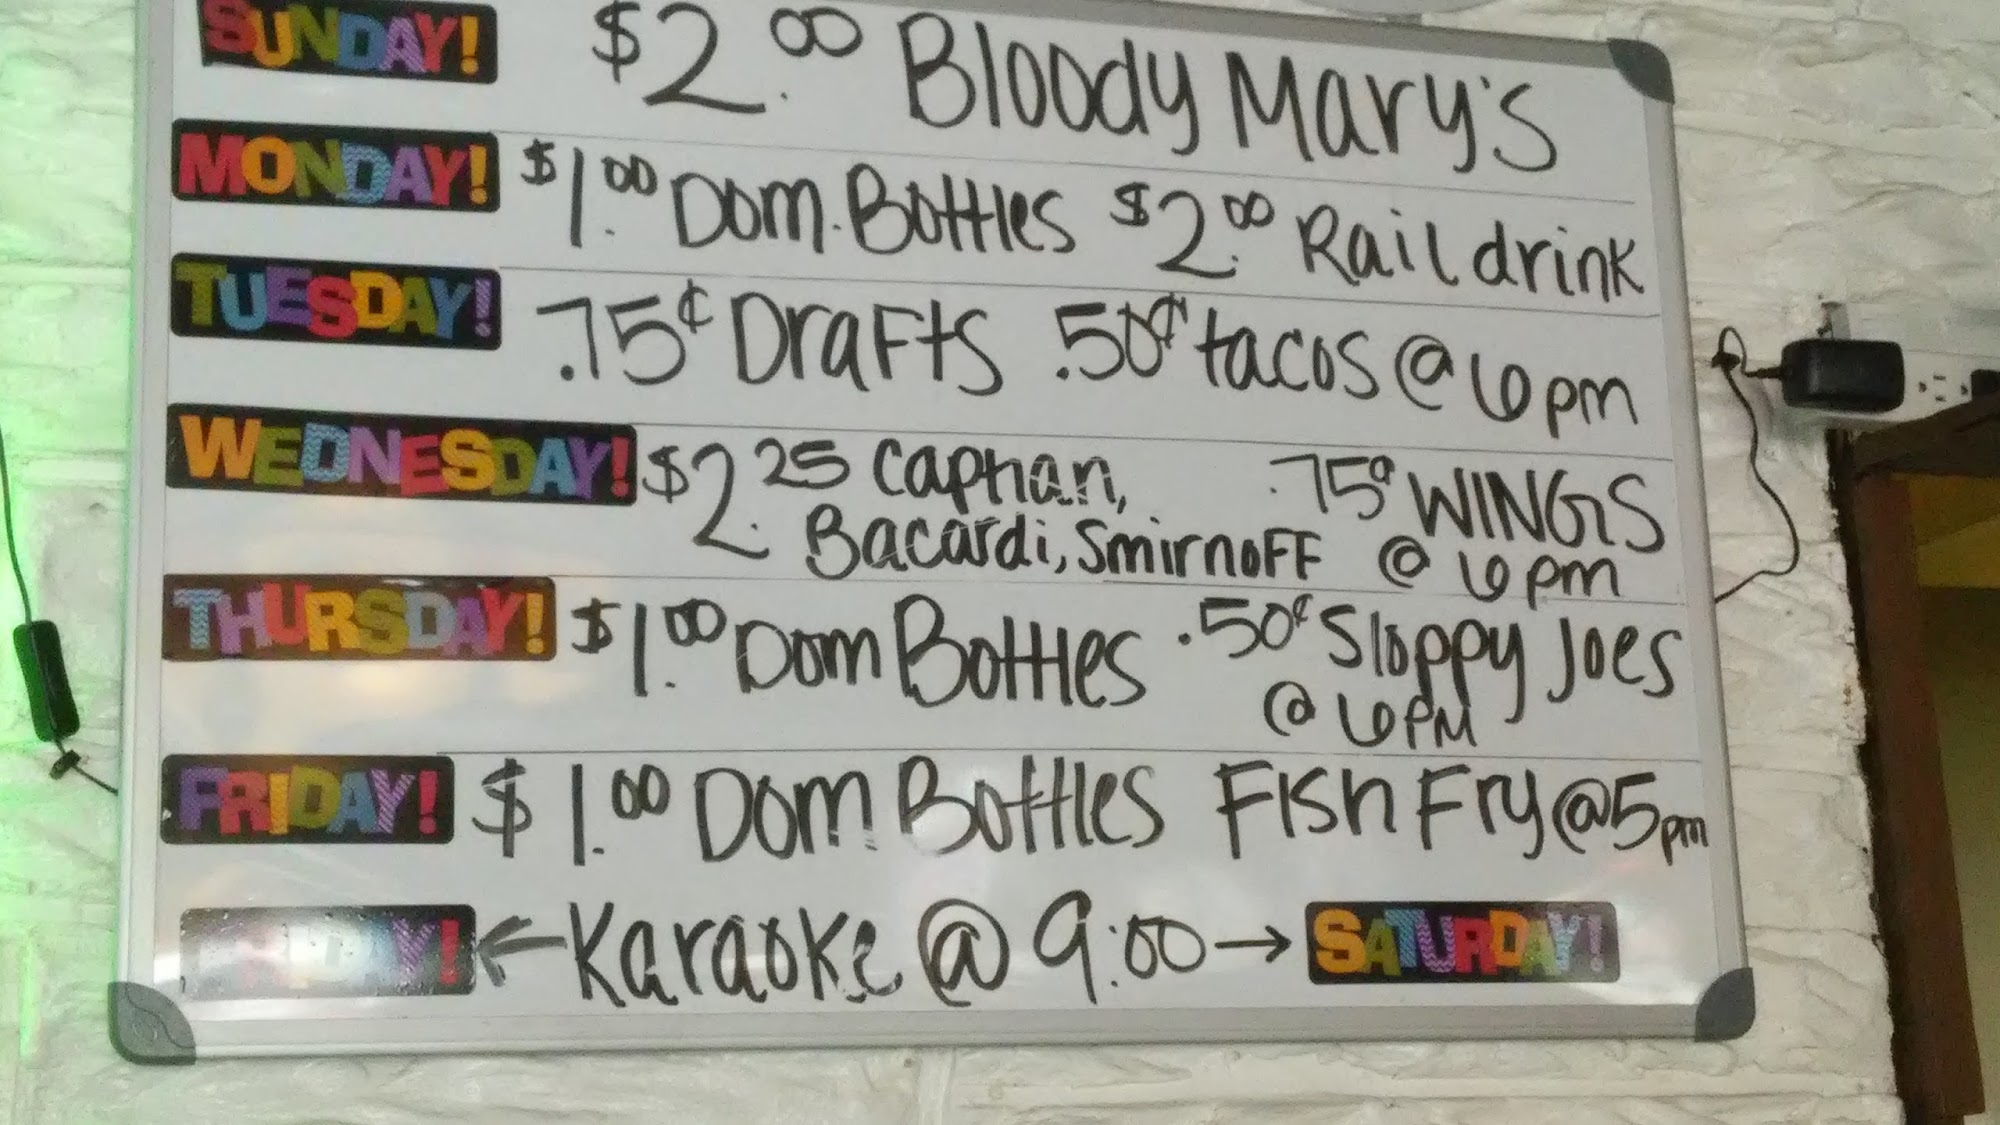 SUNDAY! $2.00 Bloody Mary's
MONDAY! $1.00 Dom. Bottles $2.00 Rail drink
TUESDAY! .75¢ Drafts .50¢ tacos @ 6pm
WEDNESDAY! $2.25 Captian, .75¢ WINGS
Bacardi, Smirnoff @ 6pm
THURSDAY! $1.00 Dom Bottles .50¢ Sloppy Joes
@ 6PM
FRIDAY! $1.00 Dom Bottles Fish Fry @ 5pm
FRIDAY! ← Karaoke @ 9:00 → SATURDAY!